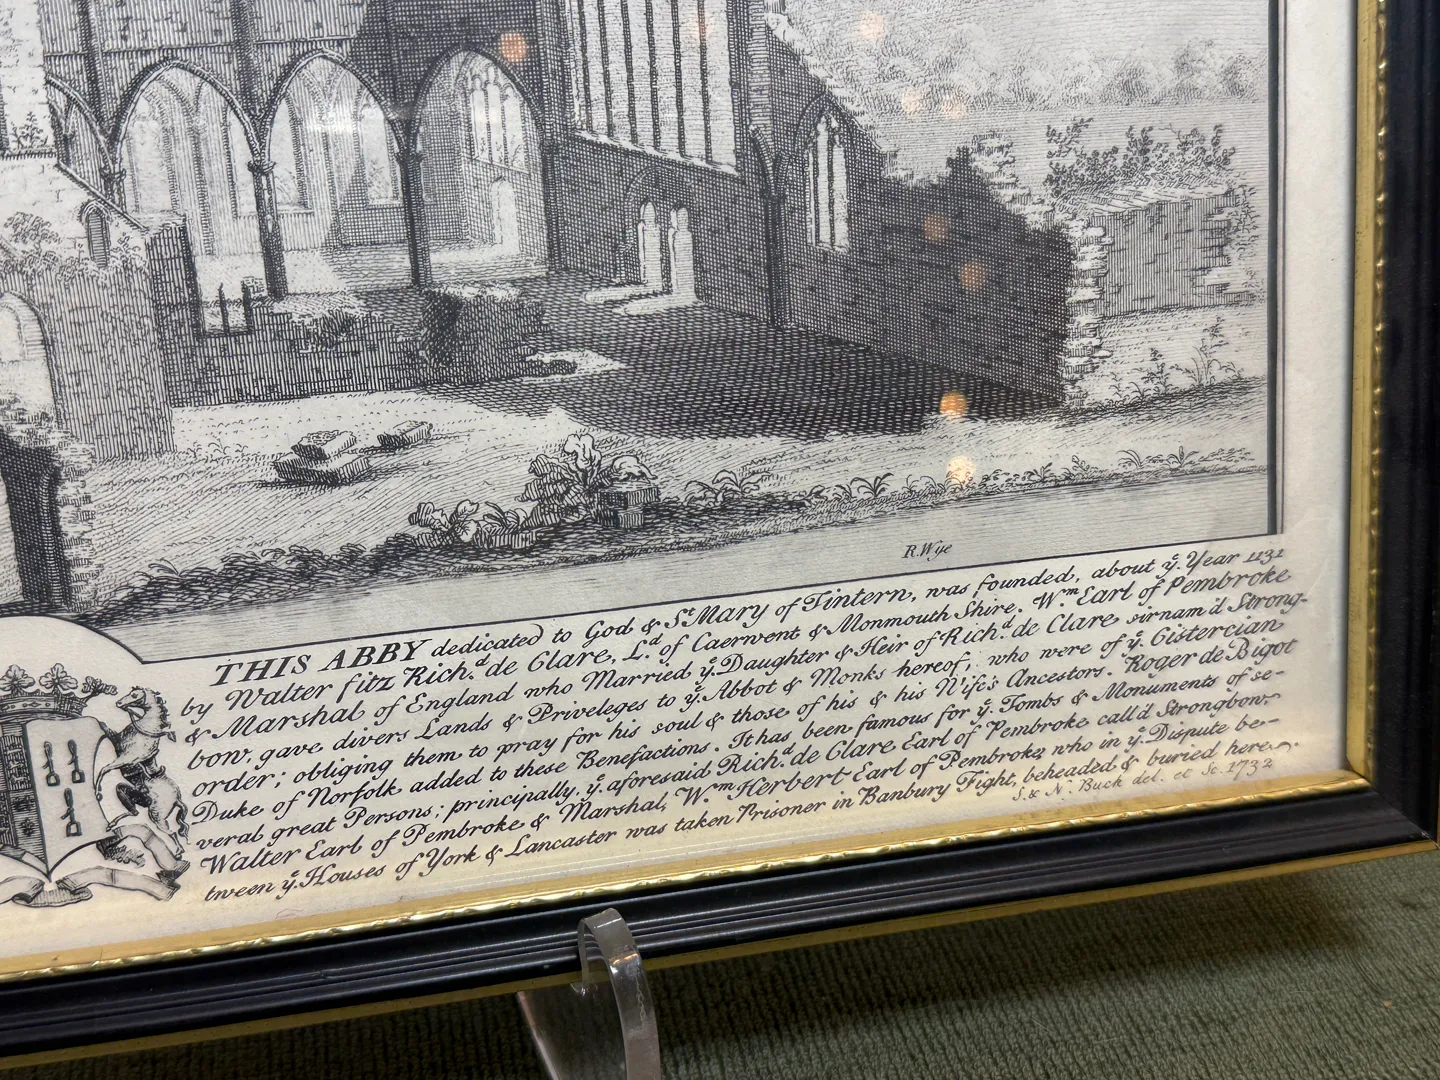 R. Wye
THIS ABBY dedicated to God & St. Mary of Tintern, was founded, about ye. Year 1131
by Walter fitz Richd. de Clare, Ld. of Caerwent & Monmouth Shire. Wm. Earl of Pembroke
& Marshal of England who Married ye. Daughter & Heir of Richd. de Clare sirnam'd Strong-
bow, gave divers Lands & Priveleges to ye. Abbot & Monks hereof; who were of ye. Cistercian
order; obliging them to pray for his soul & those of his & his Wife's Ancestors. Roger de Bigot
Duke of Norfolk added to these Benefactions. It has been famous for ye. Tombs & Monuments of se-
veral great Persons; principally, ye. aforesaid Richd. de Clare Earl of Pembroke call'd Strongbow,
Walter Earl of Pembroke & Marshal, Wm. Herbert Earl of Pembroke, who in ye. Dispute be-
tween ye. Houses of York & Lancaster was taken Prisoner in Banbury Fight, beheaded & buried here.
S. & N. Buck del. et Sc. 1732